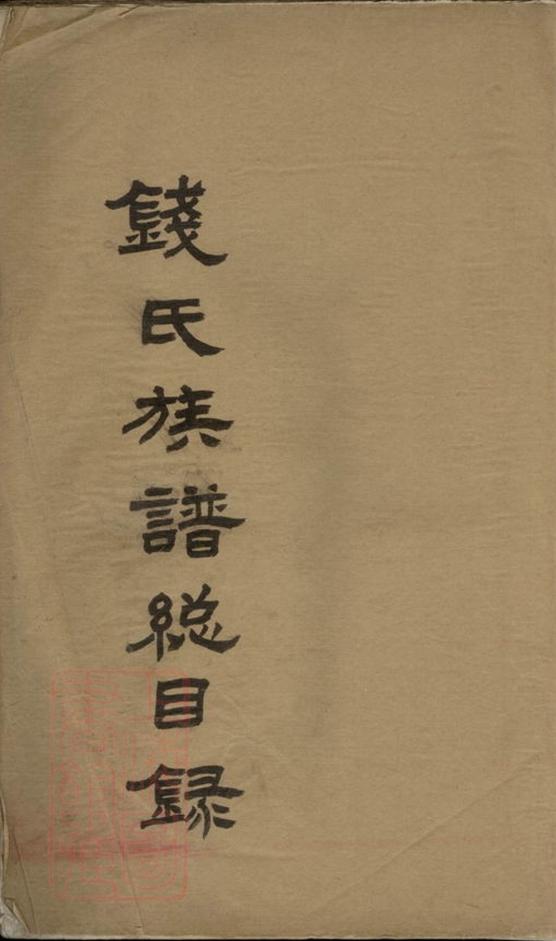 錢氏族譜総目録